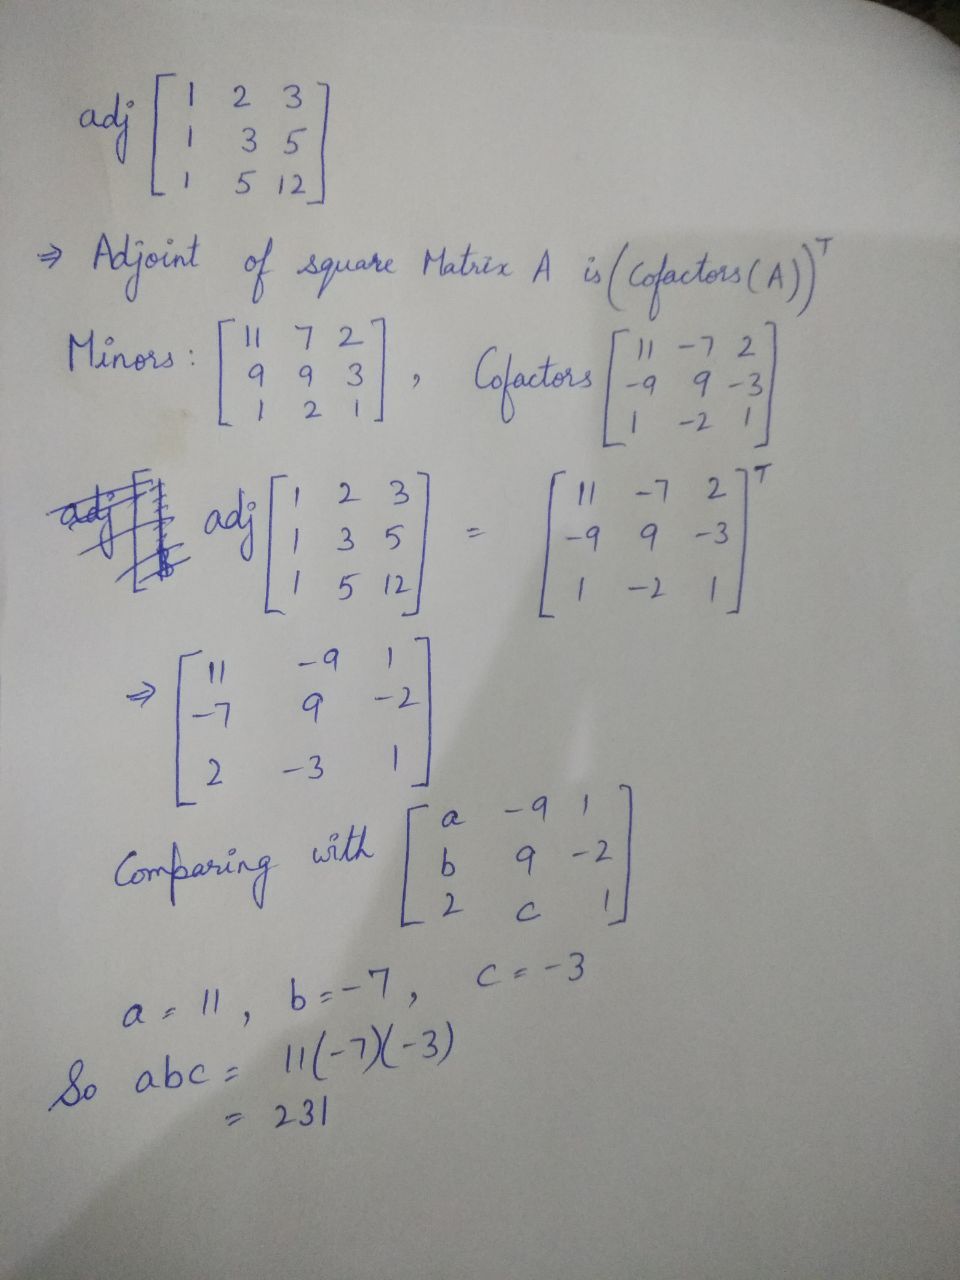 adj [ 1 2 3
1 3 5
1 5 12 ]
⇒ Adjoint of square Matrix A is (Cofactors(A))ᵀ
Minors: [ 11 7 2
9 9 3
1 2 1 ] , Cofactors [ 11 -7 2
-9 9 -3
1 -2 1 ]
adj [ 1 2 3
1 3 5
1 5 12 ] = [ 11 -7 2
-9 9 -3
1 -2 1 ]ᵀ
⇒ [ 11 -9 1
-7 9 -2
2 -3 1 ]
Comparing with [ a -9 1
b 9 -2
2 c 1 ]
a = 11, b = -7, c = -3
So abc = 11(-7)(-3)
= 231